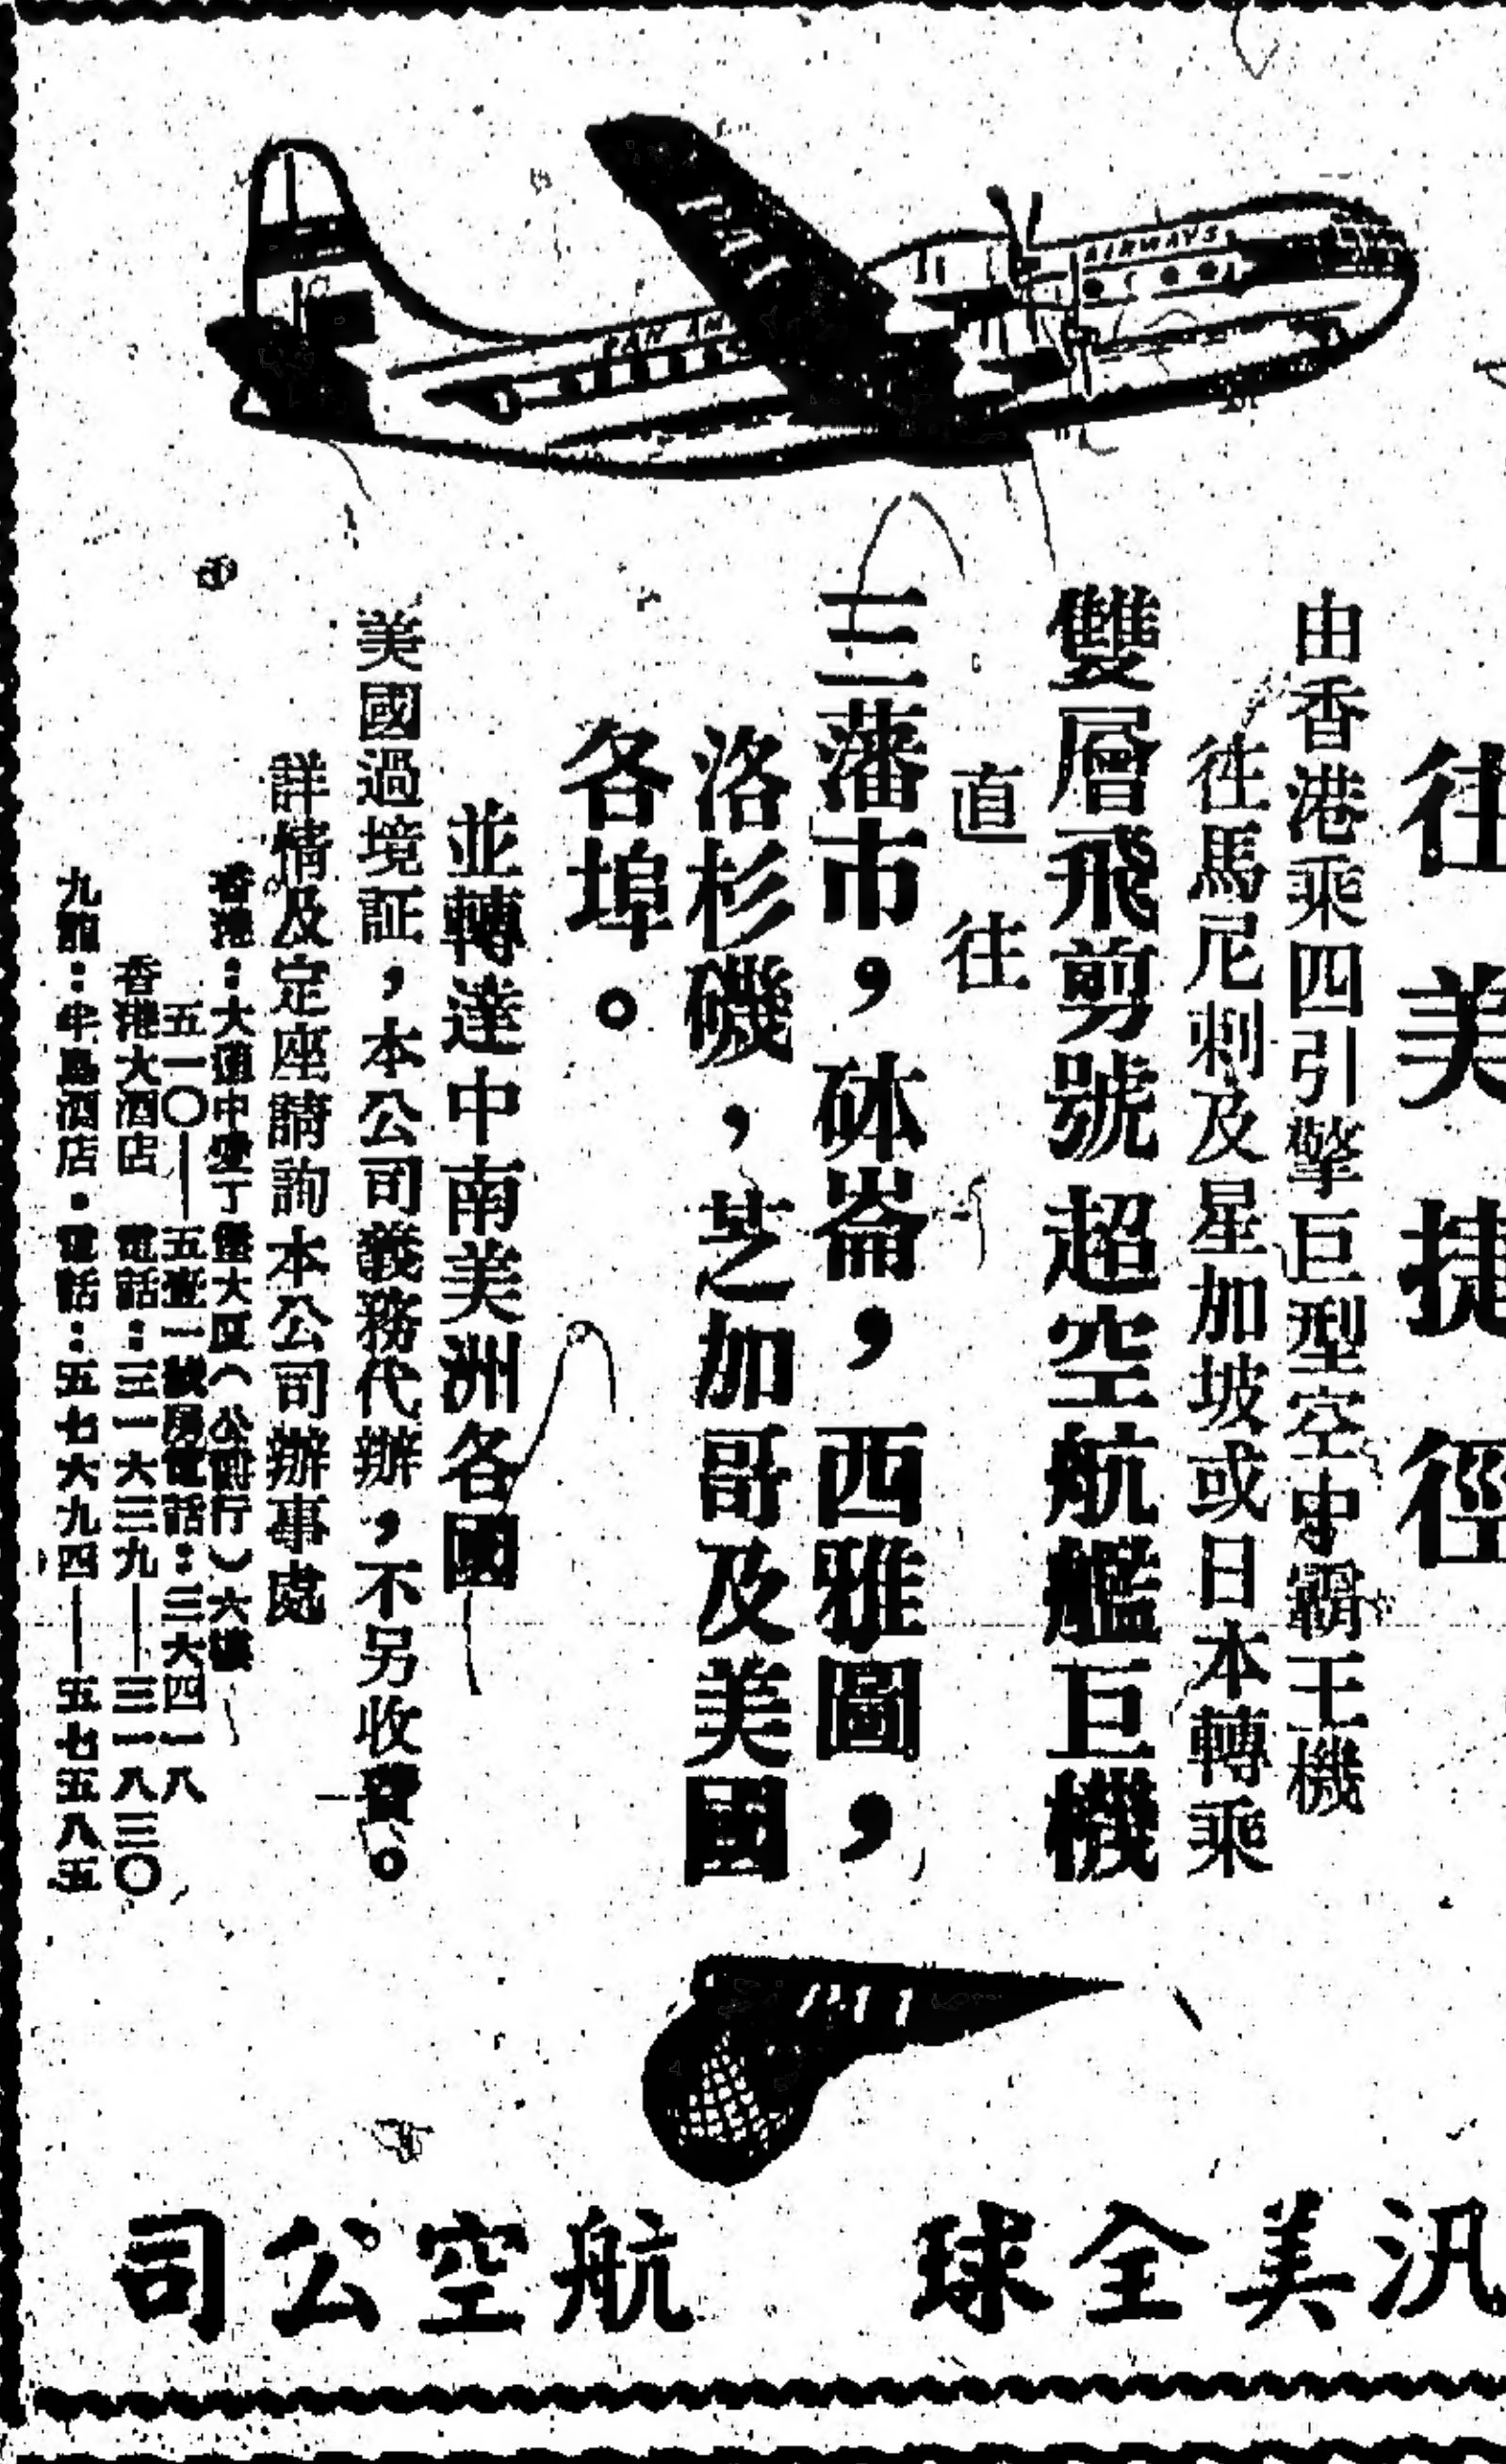 PAN AM
AIRWAYS
往美捷徑
由香港乘四引擎巨型空中霸王機
往馬尼剌及星加坡或日本轉乘
雙層飛剪號超空航艦巨機
直往
三藩市,砵崙,西雅圖,
洛杉磯,芝加哥及美國
各埠。
並轉達中南美洲各國
美國過境証,本公司義務代辦,不另收費。
詳情及定座請詢本公司辦事處
香港:大道中愛丁堡大廈(公爵行)六樓
五一〇——五壹一號房電話:三六四一八
香港大酒店 電話:三一六三九——三一八三〇
九龍:半島酒店•電話:五七六九四——五七五八五
汎美全球 航空公司